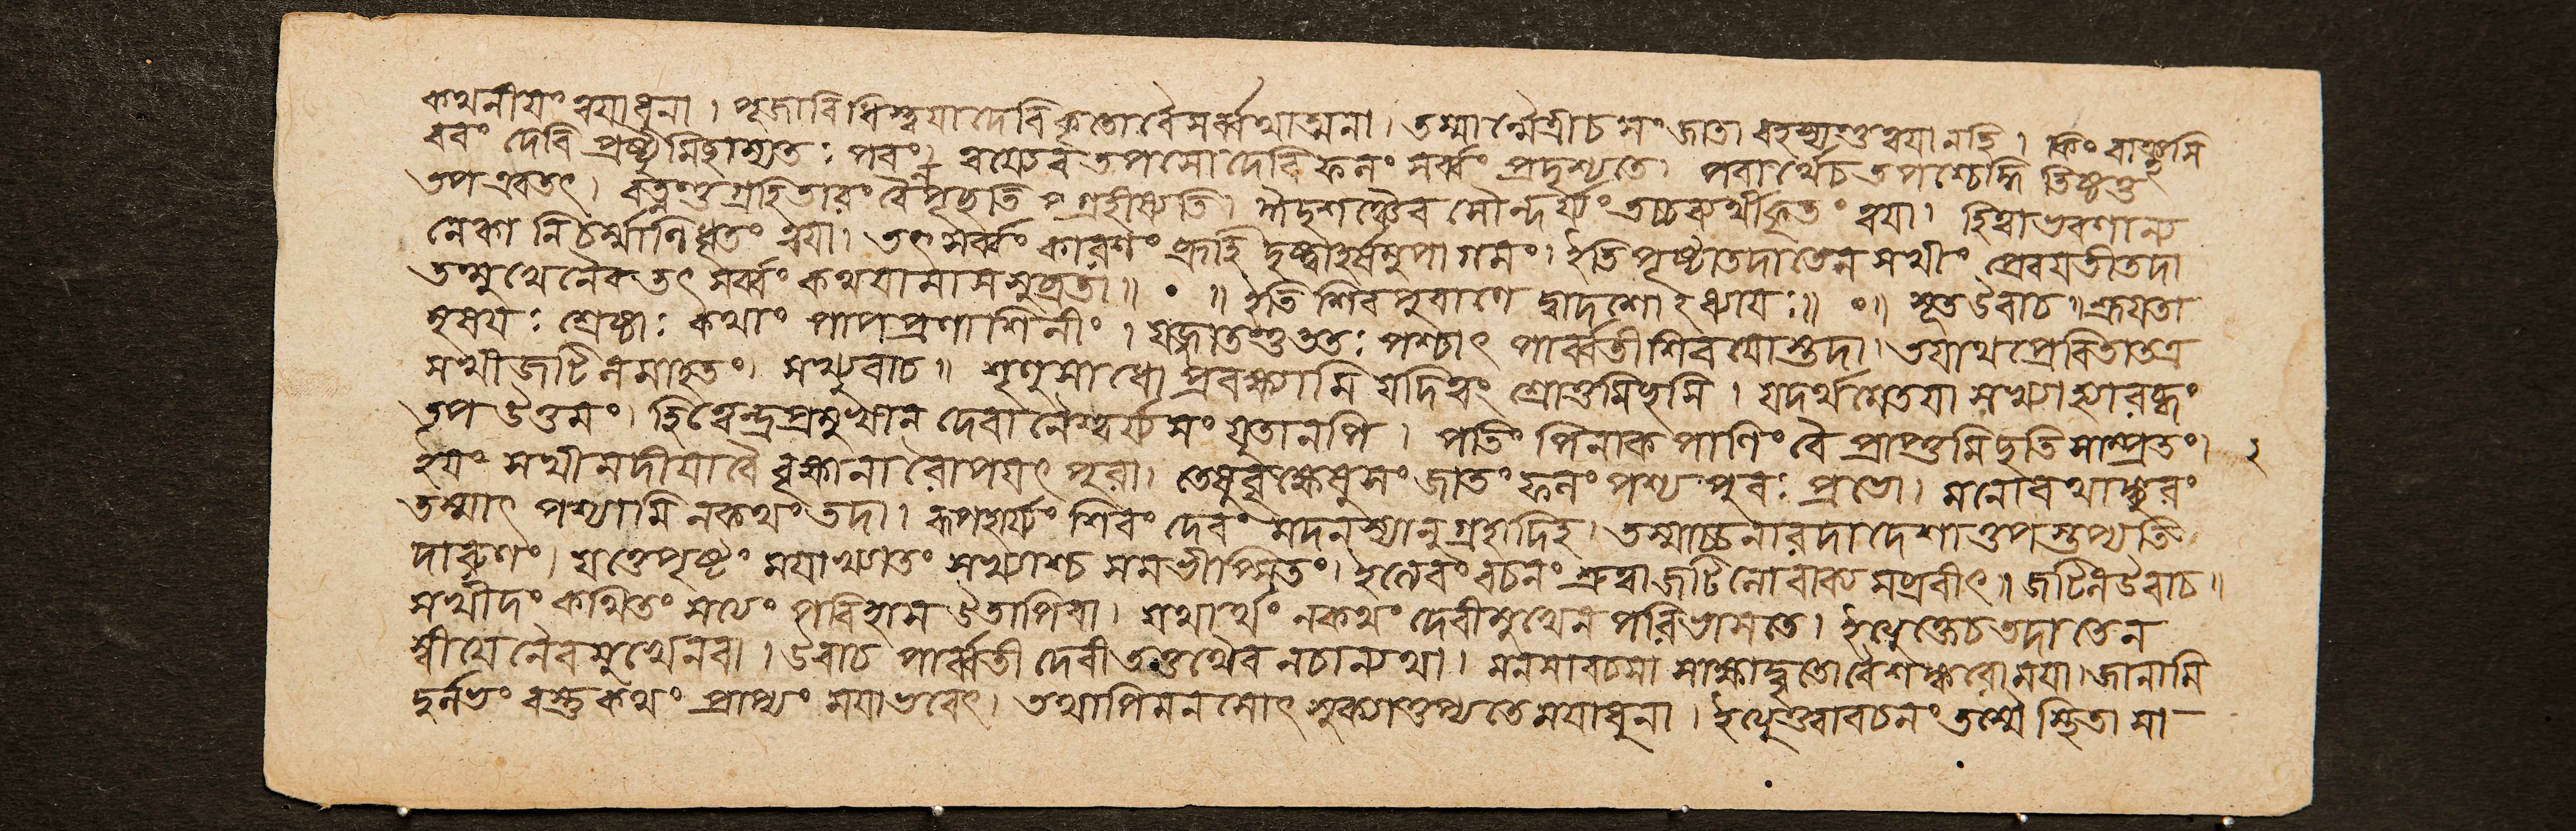 কথনীয়ং ত্বয়াধুনা। পূজাবিধিস্ত্বয়াদেবি কৃতোবৈসর্ব্বথাত্মনা। তস্মান্মৈত্রীচ সংজাতা রহস্যন্তুত্বয়ানহি। কিং বাঞ্ছসি
বরং দেবি প্রষ্টুমিছাম্যতঃ পরং। ত্বয্যেব তপসোদেবি ফলং সর্ব্বং প্রদৃশ্যতে। পরার্থেচ তপশ্চেদ্ধি তিষ্ঠতু
তপ এবতৎ। রত্নন্তু গ্রহিতারং বৈ পৃছতি ন গ্রহীষ্যতি। ঈদৃশঞ্চৈব সৌন্দর্য্যং তচ্চব্যর্থীকৃতং ত্বয়া। হিত্বাভরণান্য
নেকানি চর্ম্মাণিধৃতং ত্বয়া। তৎ সর্ব্বং কারণং ব্রূহি দৃষ্ট্বাহর্ষমুপাগমং। ইতি পৃষ্টাতদাতেন সখীং প্রেরয়তীতদা
তন্মুখেনৈব তৎ সর্ব্বং কথয়ামাস সুব্রতা॥ ॰ ॥ ইতি শিবপুরাণে দ্বাদশোঽধ্যায়ঃ॥ ॰॥ সূতউবাচ॥ শ্রূয়তা
মৃষয়ঃ শ্রেষ্ঠাঃ কথাং পাপপ্রণাশিনীং। যজ্জাতন্তু ততঃ পশ্চাৎ পার্ব্বতীশিবয়োস্তদা। তয়াথপ্রেরিতাতত্র
সখীজটিলমাহতং। সখ্যুবাচ॥ শৃণুসাধো প্রবক্ষ্যামি যদিত্বং শ্রোতুমিছসি। যদর্থমেতয়া সখ্যাহ্যারব্ধং
তপউত্তমং। হিত্বেন্দ্রপ্রমুখান দেবানৈশ্বর্য্যসংযুতানপি। পতিং পিনাকপাণিং বৈ প্রাপ্তুমিছতি সাম্প্রতং। ২
ইয়ং সখীমদীয়াবৈ বৃক্ষানারোপয়ৎ পুরা। তেষুবৃক্ষেষুসংজাতং ফলং পশ্য পুরঃ প্রভো। মনোরথাঙ্কুরং
তস্মাৎ পশ্যামি নকথং তদা। রূপহার্য্যং শিবং দেবং মদনস্যানুগ্রহাদিহ। তস্মাচ্চনারদাদেশাত্তপস্তপ্যতি
দারুণং। যত্তেপৃষ্টং ময়াখ্যাতং সখ্যাশ্চ সমভীপ্সিতং। ইত্যেবং বচনং শ্রুত্বাজটিলোবাক্যমব্রবীৎ॥ জটিলউবাচ॥
সখীদং কথিতং সত্যং পরিহাস উতাপিবা। যথার্থং নকথং দেবীমুখেন পরিভাসতে। ইত্যুক্তেচ তদাতেন
স্বীয়েনৈবমুখেনবা। উবাচ পার্ব্বতী দেবী তত্তথৈব নচান্যথা। মনসাবচসা সাক্ষাদ্বৃতোবৈশঙ্করোময়া। জানামি
দুর্লভং বস্তু কথং প্রাপ্যং ময়াভবেৎ। তথাপিমনসোৎসুক্যাত্তপ্যতেময়াধুনা। ইত্যুক্ত্বাবচনং তস্মৈ স্থিতা সা